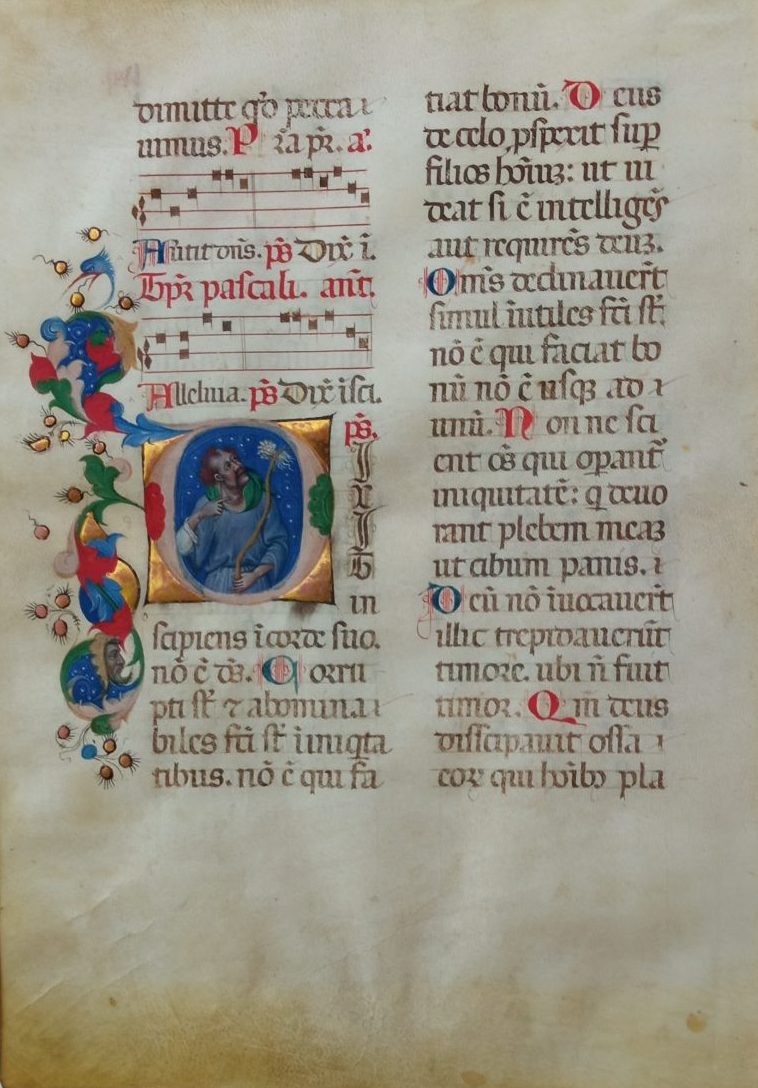 dimitte q̃o pecca
uimus. P ria pr̃. a.
Astitit dñs. ps̃ Dix̃ i.
Tp̃r pascali. ant̃.
Alleluia. ps̃ Dix̃ ĩsci.
ps̃.
D
I
X
I
T
in
sapiens ĩ corde suo.
nõ ẽ ds̃. Corru
pti st̃ ⁊ abomina
biles fc̃i st̃ ĩ iniqta
tibus. nõ ẽ qui fa
tiat bonũ. Deus
de celo ꝓspexit suꝑ
filios hoĩuꝫ: ut ui
deat si ẽ intelligẽs
aut requirẽs deuꝫ.
Om̃s declinauer̃t
simul ĩutiles fc̃i st̃.
nõ ẽ qui faciat bo
nũ nõ ẽ usqꝫ ad
unũ. Nonne sci
ent oẽs qui oꝑant̃
iniquitatẽ: q deuo
rant plebem meaꝫ
ut cibum panis.
Deũ nõ ĩuocauer̃t
illic trepidauerũt
timore. ubi ñ fuit
timor. Qm̃ deus
dissipauit ossa
eoꝝ qui hoĩbꝰ pla